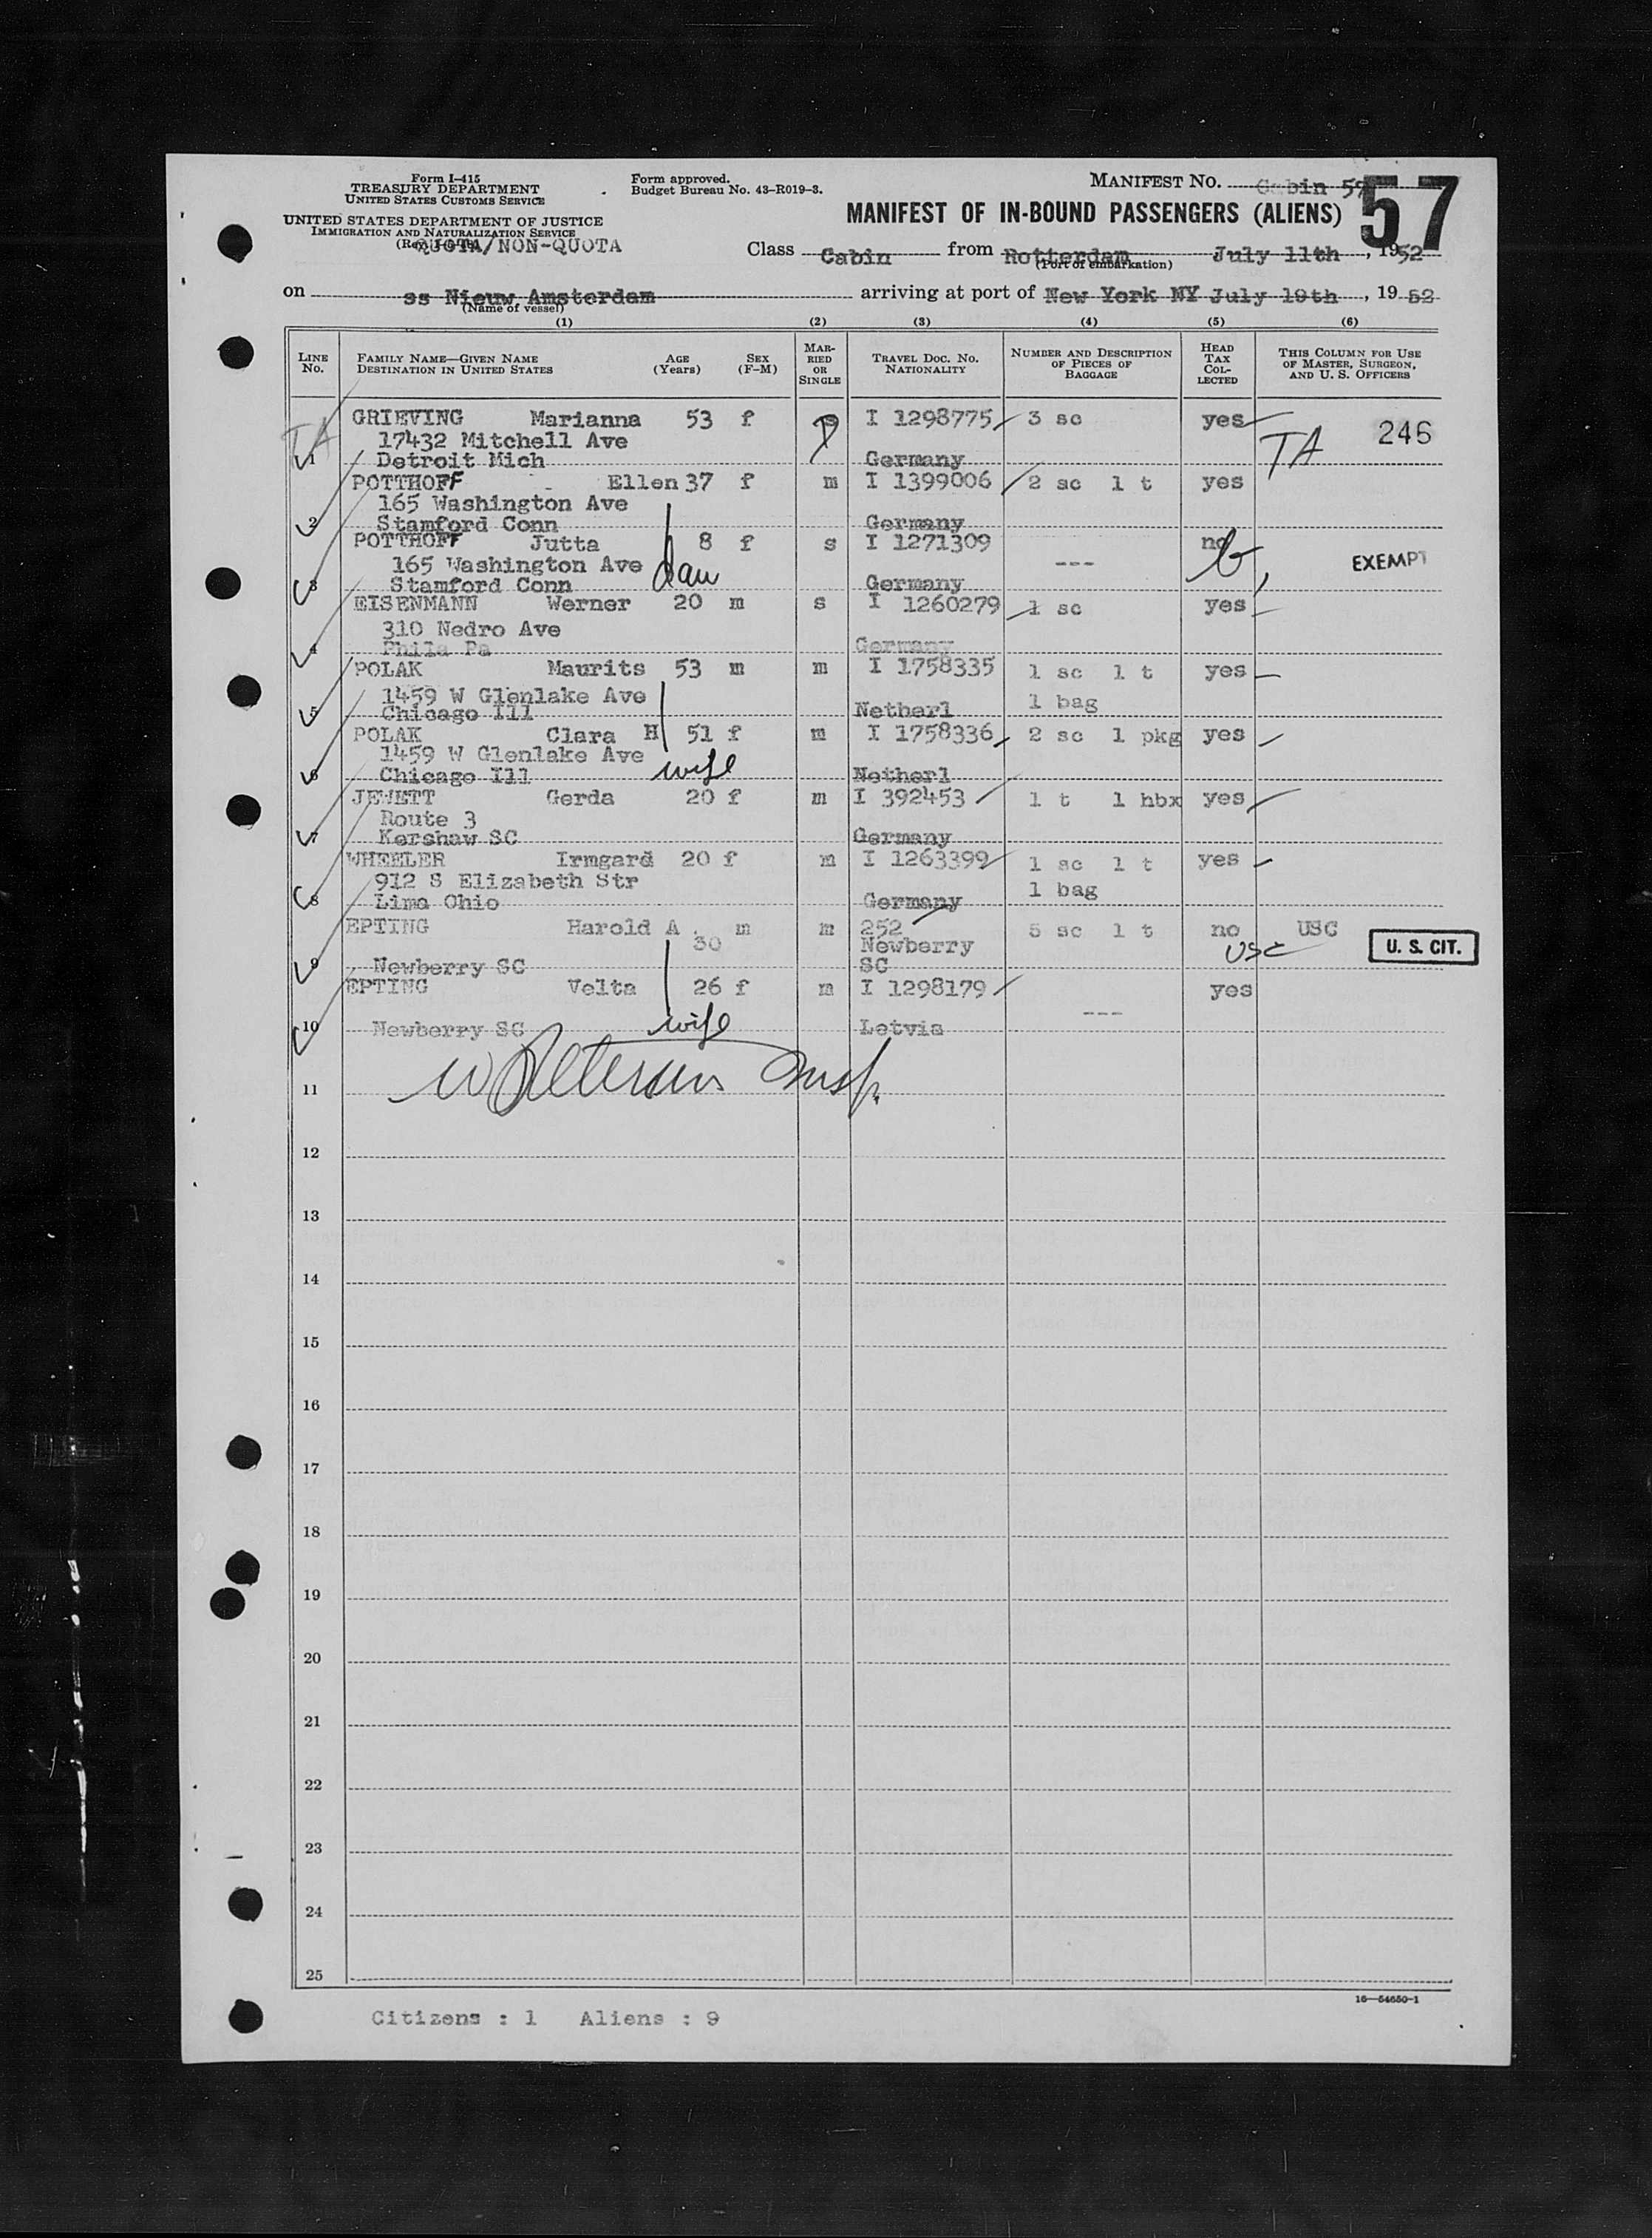 Form I-415
TREASURY DEPARTMENT
UNITED STATES CUSTOMS SERVICE
UNITED STATES DEPARTMENT OF JUSTICE
IMMIGRATION AND NATURALIZATION SERVICE
QUOTA/NON-QUOTA
Form approved.
Budget Bureau No. 43-R019-3.
MANIFEST NO. Cabin 57
57
MANIFEST OF IN-BOUND PASSENGERS (ALIENS)
Class Cabin from Rotterdam July 11th, 1952
(Port of embarkation)
on ss Nieuw Amsterdam arriving at port of New York NY July 19th, 19 52
(Name of vessel)
(1) (2) (3) (4) (5) (6)
LINE No. FAMILY NAME—GIVEN NAME DESTINATION IN UNITED STATES AGE (Years) SEX (F-M) MARRIED OR SINGLE TRAVEL DOC. NO. NATIONALITY NUMBER AND DESCRIPTION OF PIECES OF BAGGAGE HEAD TAX COLLECTED THIS COLUMN FOR USE OF MASTER, SURGEON, AND U. S. OFFICERS
GRIEVING Marianna 53 f I 1298775 3 sc yes TA 246
TA 17432 Mitchell Ave
1 Detroit Mich Germany
POTTHOFF Ellen 37 f m I 1399006 2 sc 1 t yes
165 Washington Ave
2 Stamford Conn Germany
POTTHOFF Jutta 8 f s I 1271309 --- no EXEMPT
165 Washington Ave dau
3 Stamford Conn Germany
EISENMANN Werner 20 m s I 1260279 1 sc yes
310 Nedro Ave
4 Phila Pa Germany
POLAK Maurits 53 m m I 1758335 1 sc 1 t yes
1459 W Glenlake Ave 1 bag
5 Chicago Ill Netherl
POLAK Clara H 51 f m I 1758336 2 sc 1 pkg yes
1459 W Glenlake Ave wife
6 Chicago Ill Netherl
JEWETT Gerda 20 f m I 392453 1 t 1 hbx yes
Route 3
7 Kershaw SC Germany
WHEELER Irmgard 20 f m I 1263399 1 sc 1 t yes
912 S Elizabeth Str 1 bag
8 Lima Ohio Germany
EPTING Harold A. 30 m m 252 5 sc 1 t no USC
Newberry USC U. S. CIT.
9 Newberry SC SC
EPTING Velta 26 f m I 1298179 --- yes
10 Newberry SC wife Latvia
11
12
13
14
15
16
17
18
19
20
21
22
23
24
25
16—54650-1
Citizens : 1 Aliens : 9